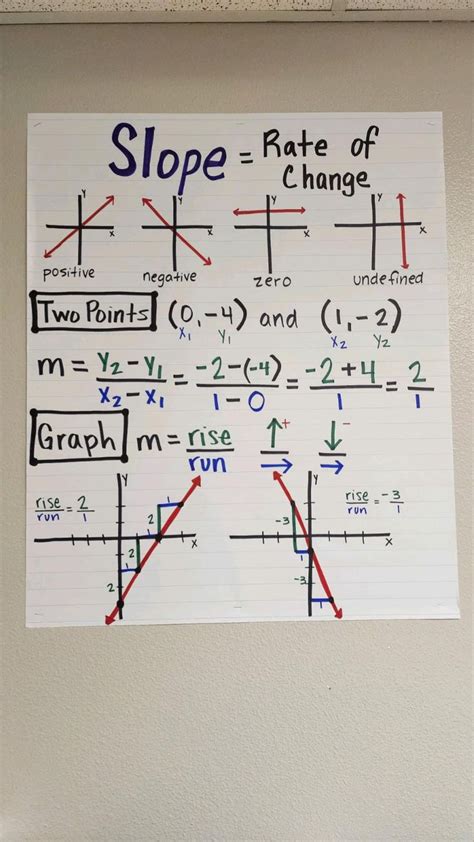 Slope = Rate of Change
y x y x y x y x
positive negative zero undefined
Two Points (0,-4) and (1,-2)
x₁ y₁ x₂ y₂
m = y₂-y₁/x₂-x₁ = -2-(-4)/1-0 = -2+4/1 = 2/1
Graph m = rise/run ↑+/→ ↓-/→
rise/run = 2/1
y
x
1
2
1
2
1
2
rise/run = -3/1
y
x
-3
1
-3
1